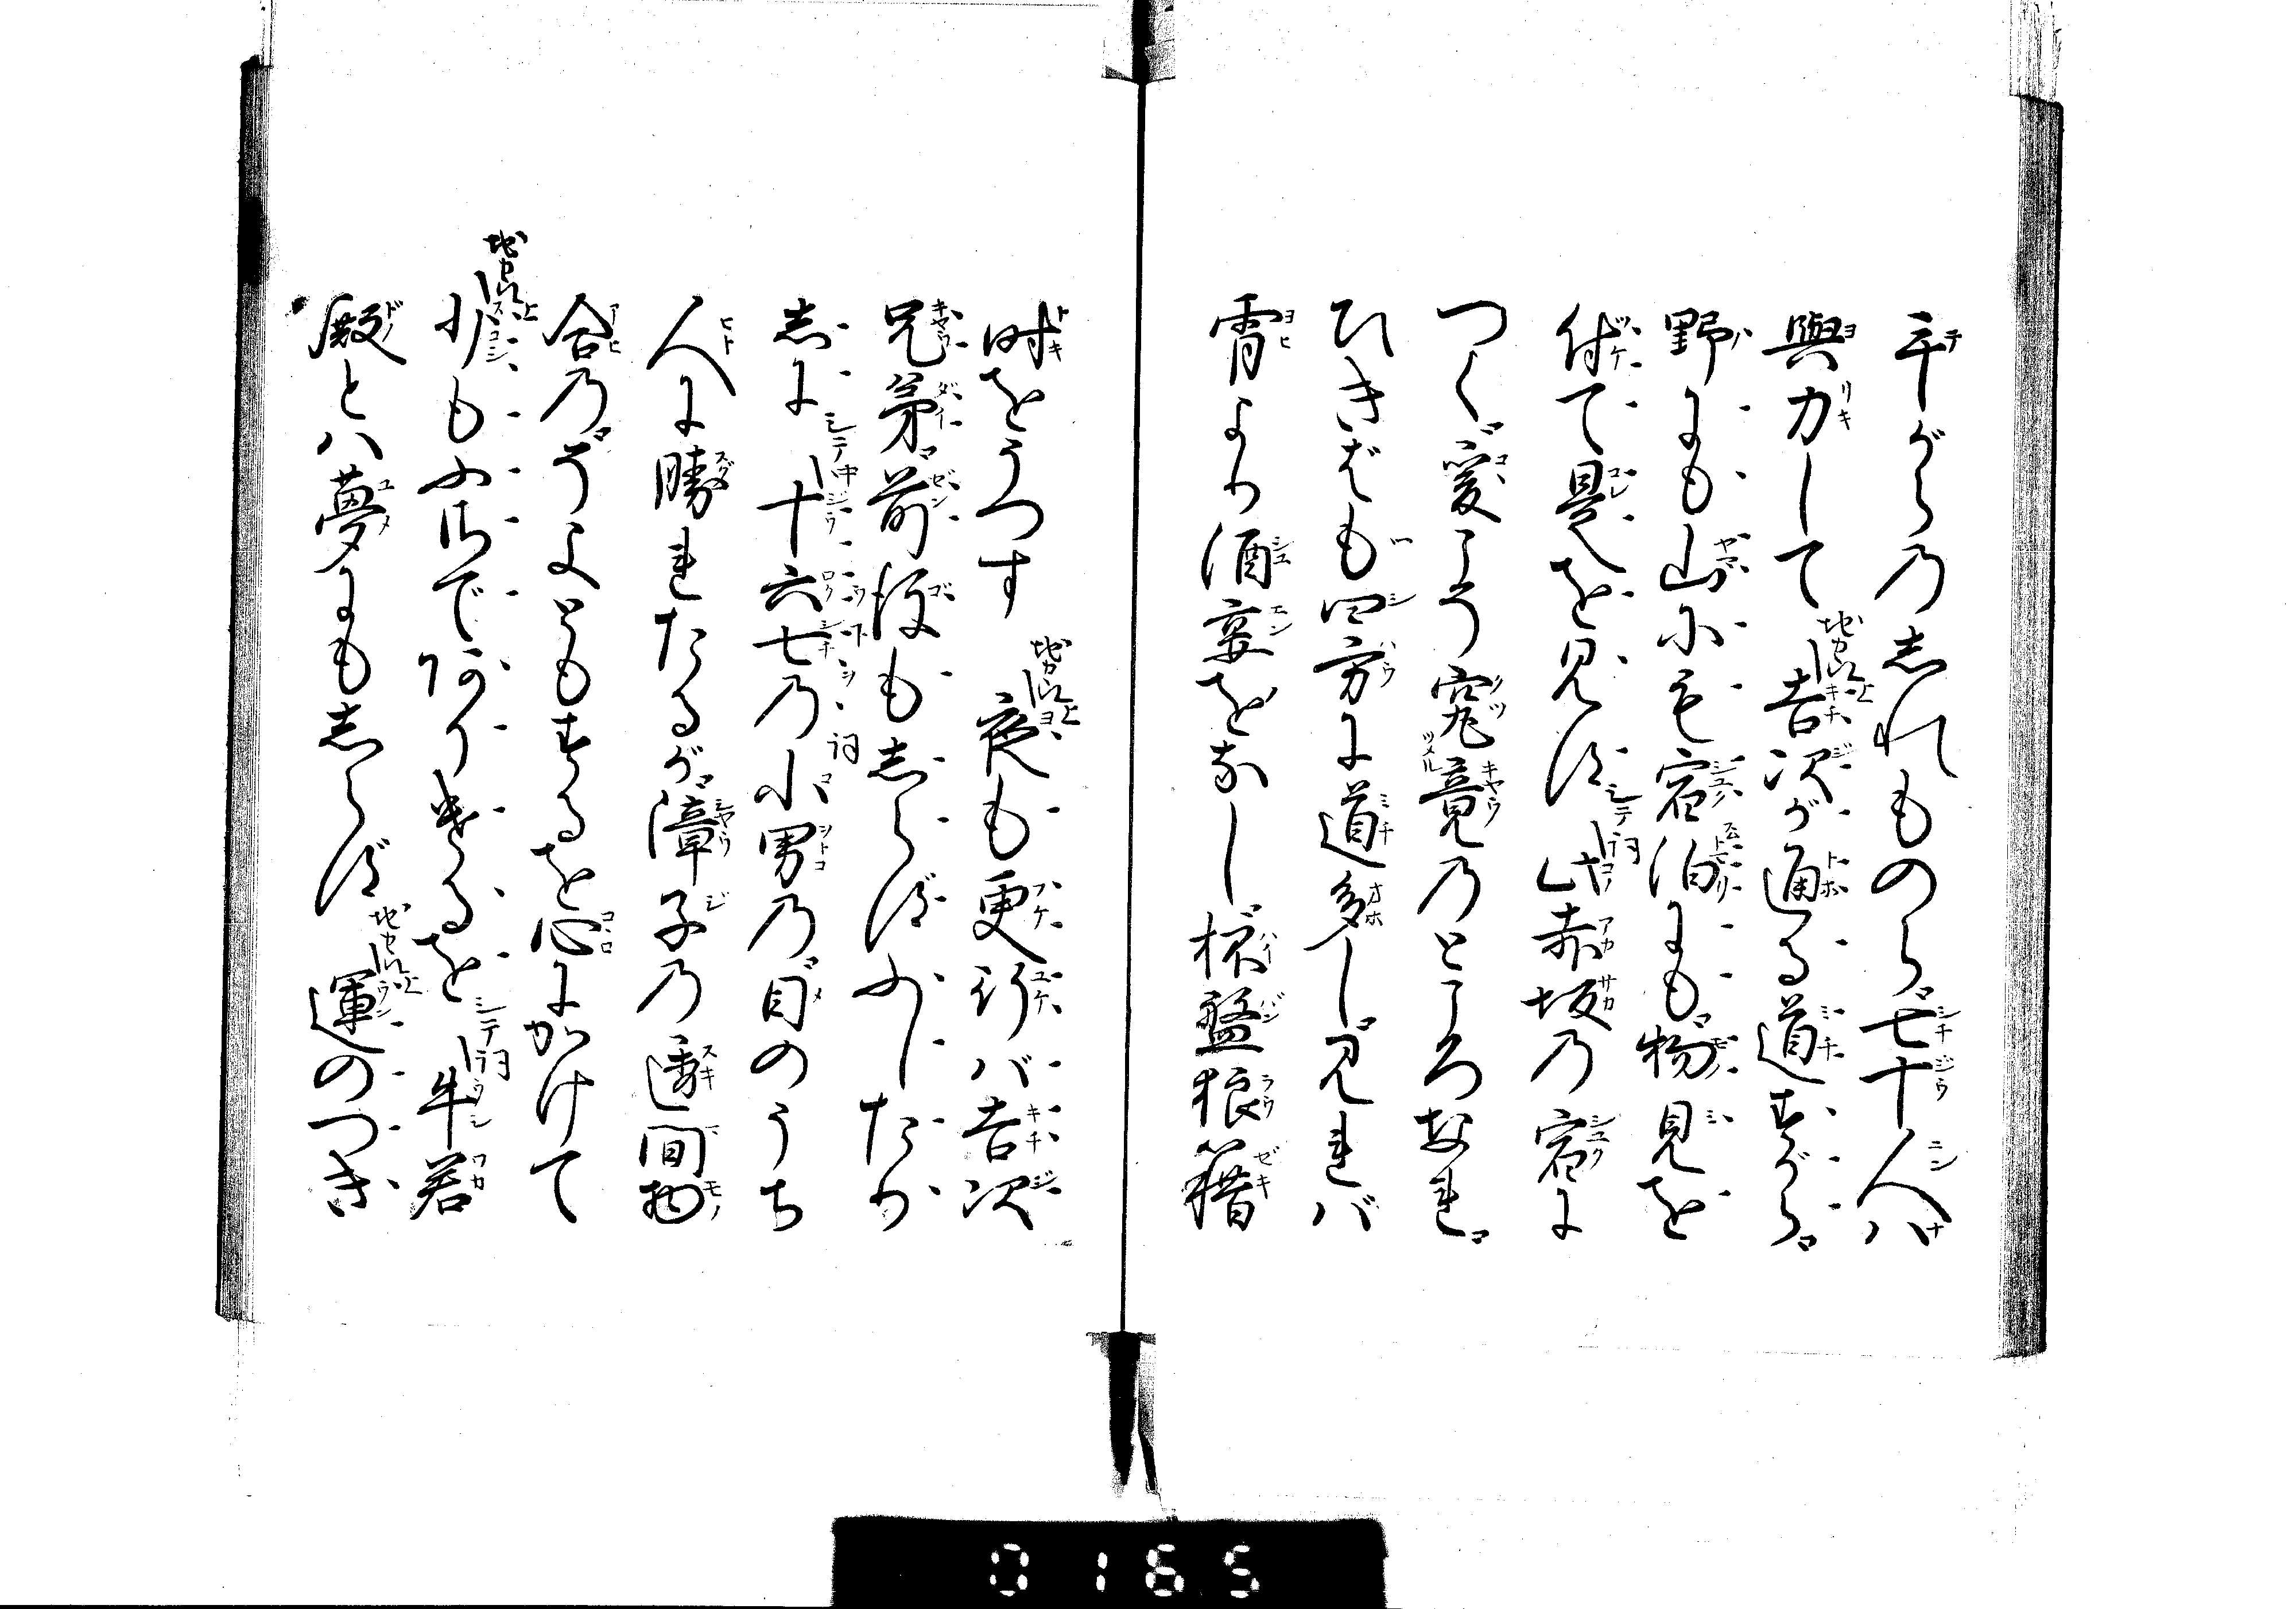 手がらの志れものら七十人ハ
與力して吉次が通る道すがら
野にも山にも宿泊にも物見を
付て是を見す此赤坂の宿に
つく爰こそ究竟のところなれ
ひきばも四方に道多し見れバ
宵より酒宴をなし杯盤狼藉
時をうつす夜も更行バ吉次
兄弟前後も志らずふしたり
志に十六七の小男の目のうち
人に勝れたるが障子の透間物
合のそよともするを心にかけて
少もふさで有りけるを牛若
殿とハ夢にも志らず運のつき
0165